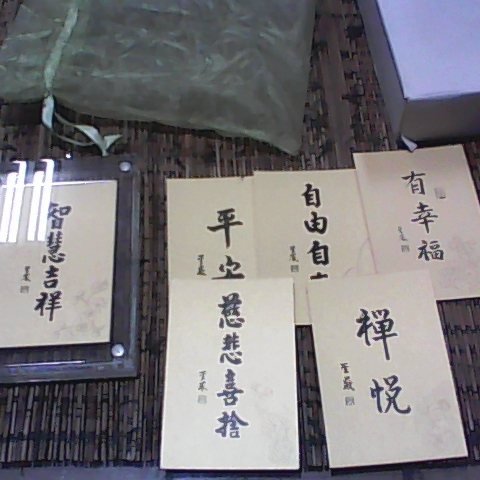 智慧吉祥
聖嚴
平安
聖嚴
自由自
聖嚴
有幸福
聖嚴
慈悲喜捨
聖嚴
禪悅
聖嚴